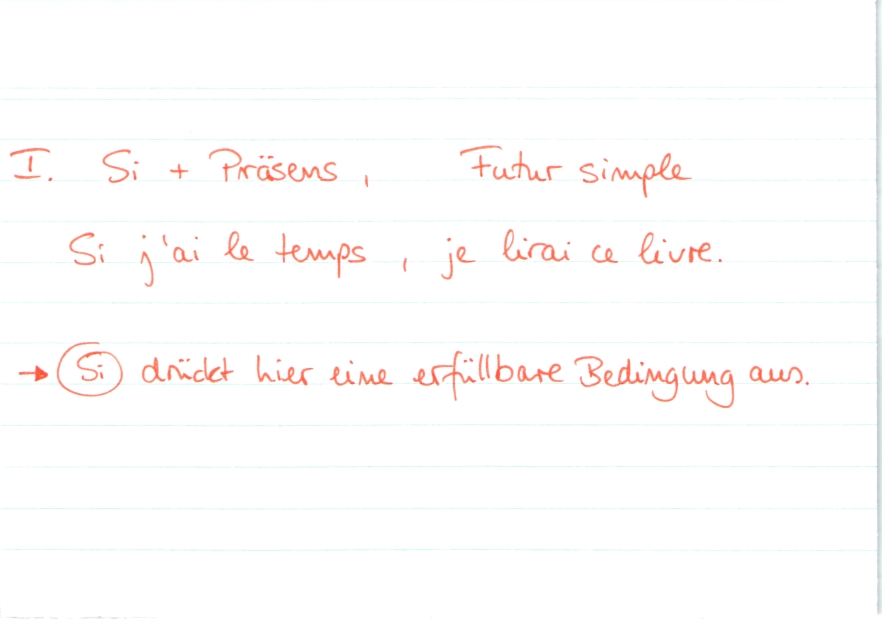 I. Si + Präsens, Futur simple
Si j'ai le temps, je lirai ce livre.
→ Si drückt hier eine erfüllbare Bedingung aus.